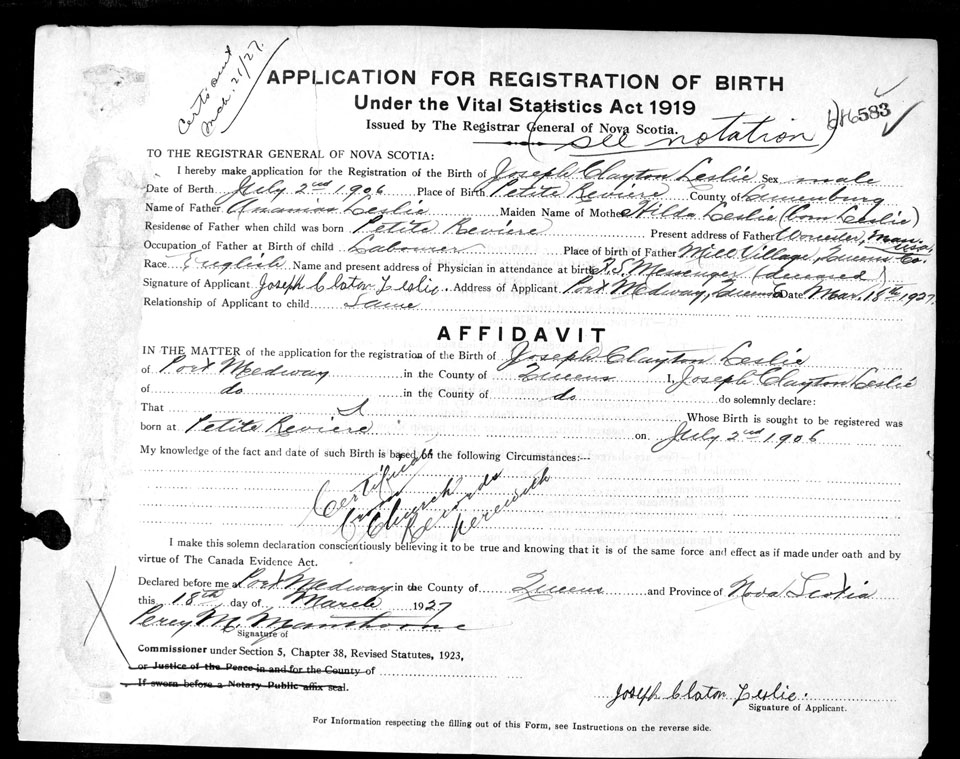 Certs sent
Mch. 21/27.
APPLICATION FOR REGISTRATION OF BIRTH
Under the Vital Statistics Act 1919
Issued by The Registrar General of Nova Scotia.
(see notation) 583
TO THE REGISTRAR GENERAL OF NOVA SCOTIA:
I hereby make application for the Registration of the Birth of Joseph Clayton Leslie Sex male
Date of Birth July 2nd 1906 Place of Birth Petite Reviére County of Lunenburg
Name of Father Ananias Leslie Maiden Name of Mother Hilda Leslie (born Leslie)
Residense of Father when child was born Petite Reviére Present address of Father Worcester, Mass, USA,
Occupation of Father at Birth of child Labourer Place of birth of Father Mill Village, Queens Co.
Race English Name and present address of Physician in attendance at birth Messenger (deceased)
Signature of Applicant Joseph Claton Leslie. Address of Applicant Port Medway, Queens Date Mar. 18th 1927.
Relationship of Applicant to child Same
AFFIDAVIT
IN THE MATTER of the application for the registration of the Birth of Joseph Clayton Leslie
of Port Medway in the County of Queens I, Joseph Clayton Leslie
of do in the County of do do solemnly declare:
That I Whose Birth is sought to be registered was
born at Petite Reviere on July 2nd 1906
My knowledge of the fact and date of such Birth is based on the following Circumstances:--
Certificate
from
Church
Records
herewith
I make this solemn declaration conscientiously believing it to be true and knowing that it is of the same force and effect as if made under oath and by
virtue of The Canada Evidence Act.
Declared before me at Port Medway in the County of Queens and Province of Nova Scotia
this 18th day of March 1927
Percy M.
Signature of
Commissioner under Section 5, Chapter 38, Revised Statutes, 1923,
or Justice of the Peace in and for the County of
If sworn before a Notary Public affix seal.
Joseph Claton Leslie.
Signature of Applicant.
For Information respecting the filling out of this Form, see Instructions on the reverse side.